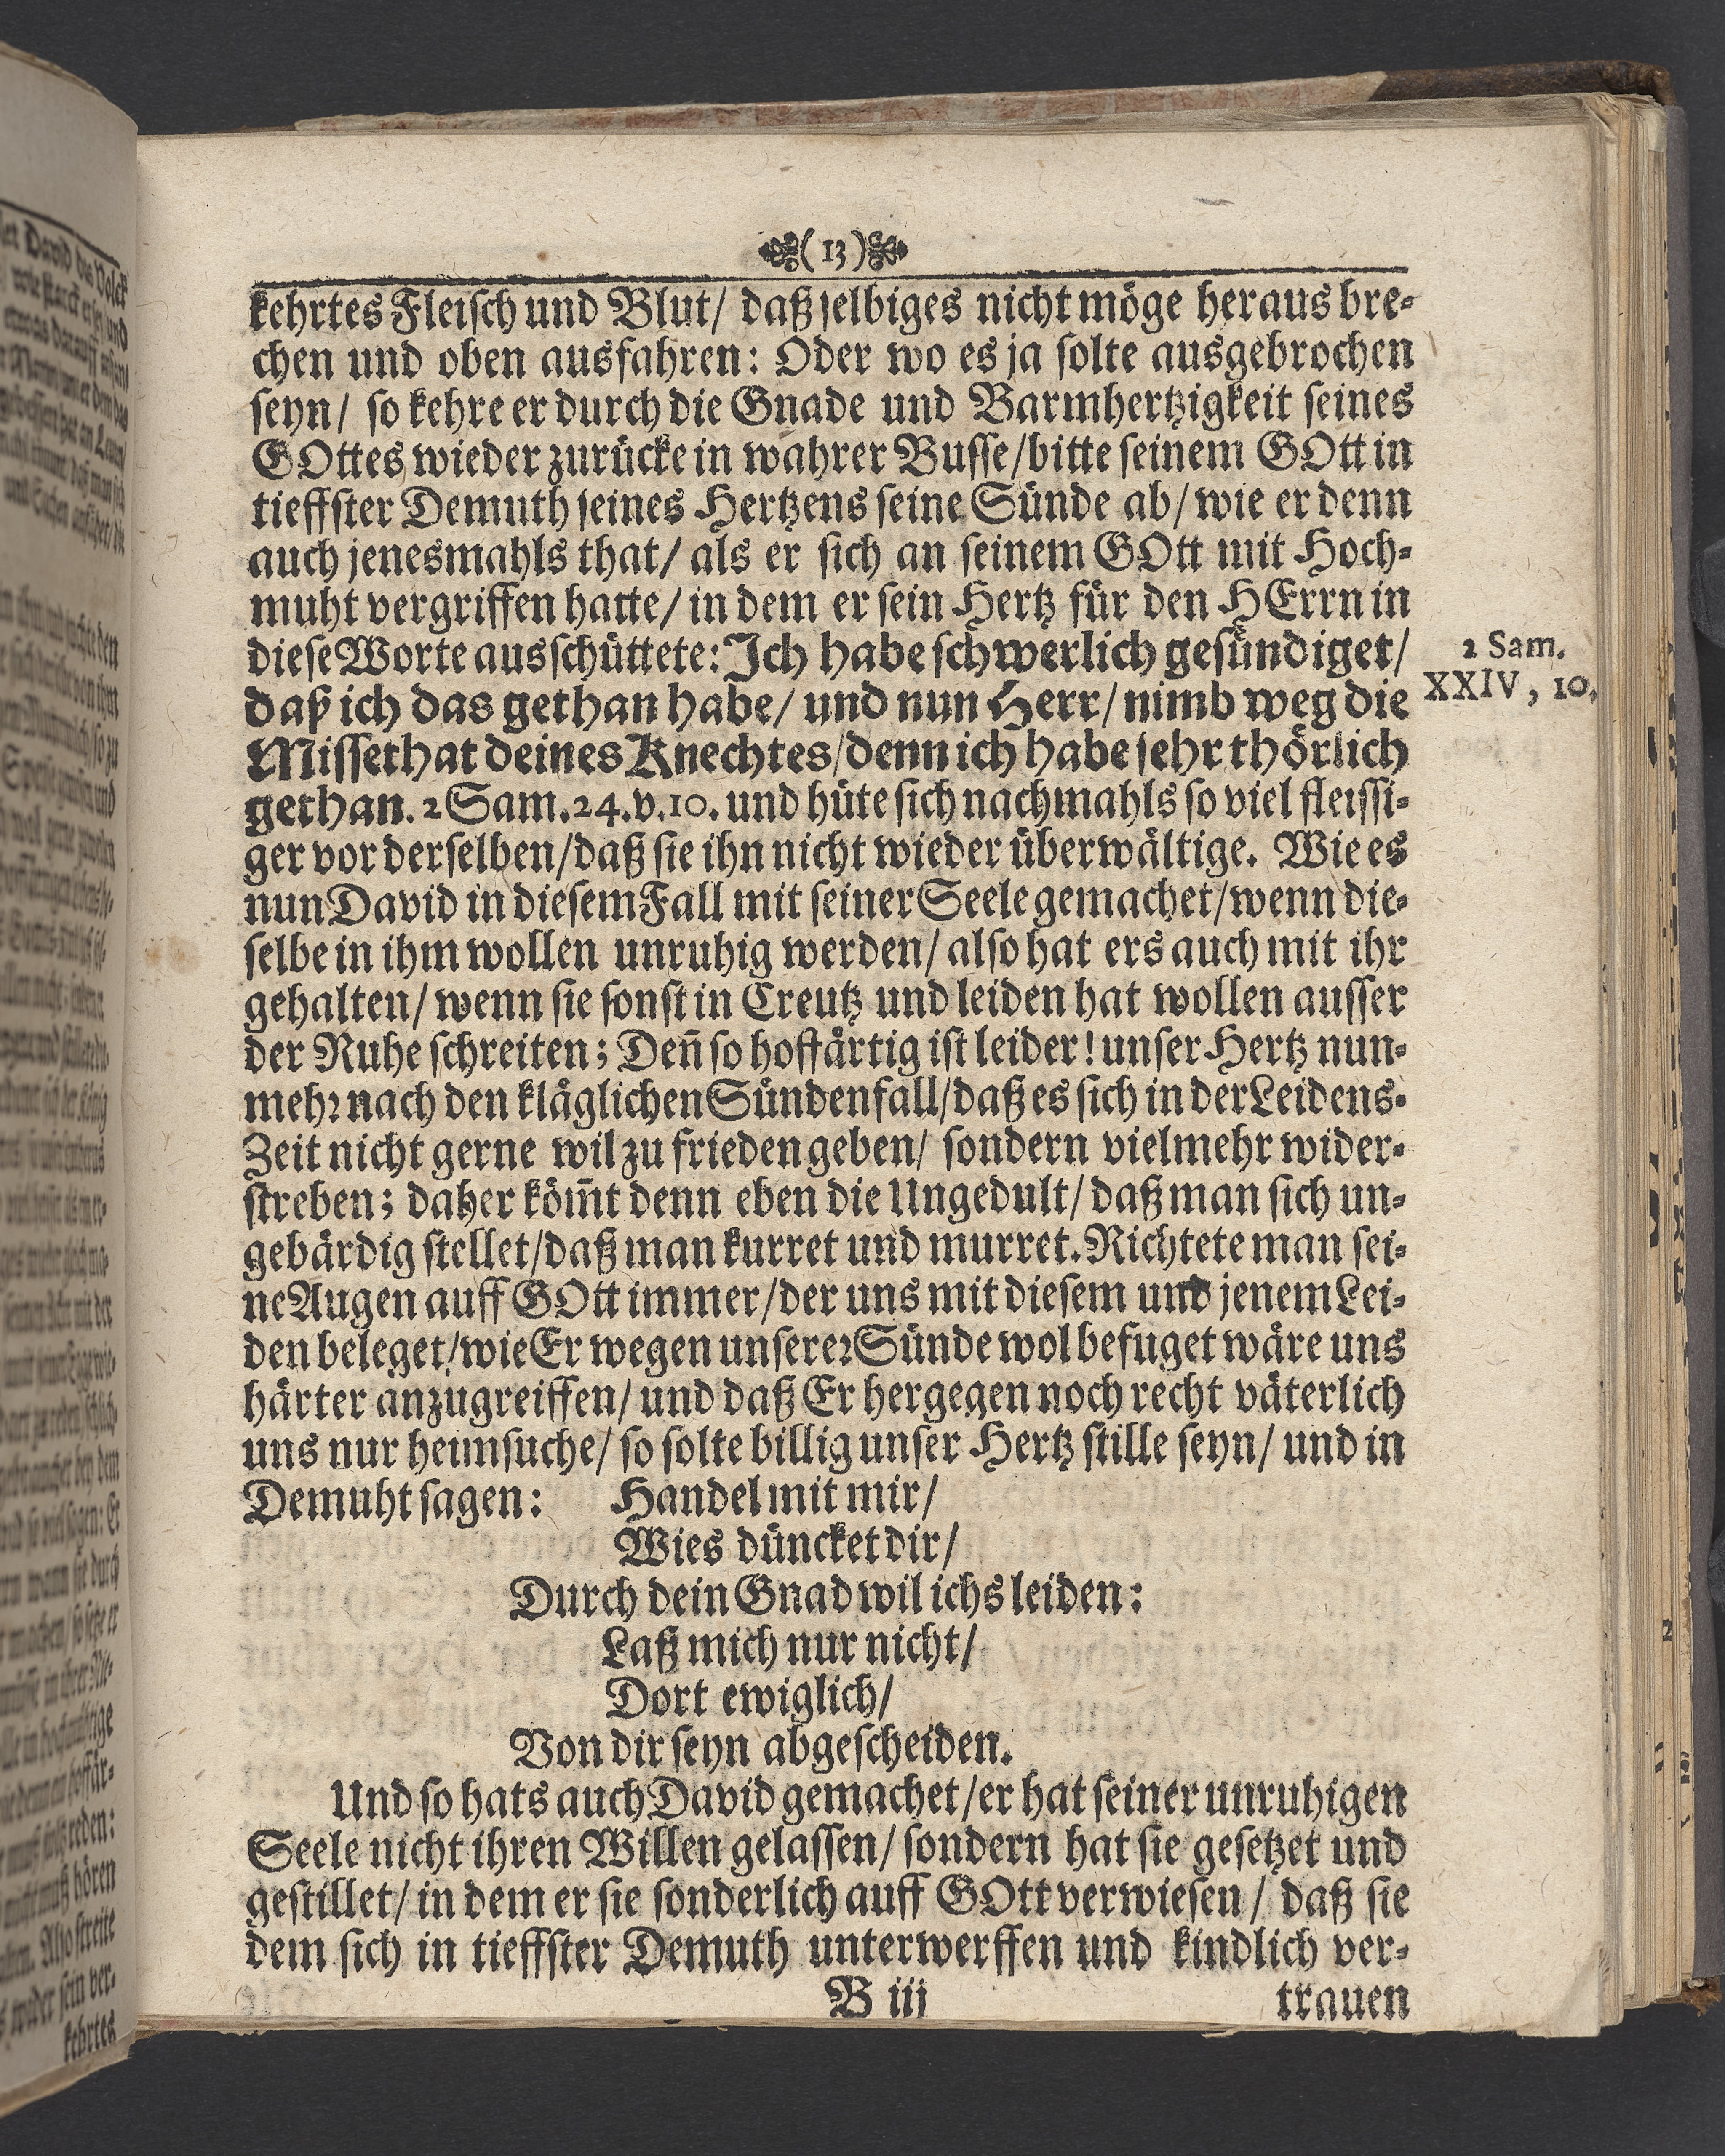 (13)
kehrtes Fleisch und Blut/ daß selbiges nicht möge heraus bre-
chen und oben ausfahren: Oder wo es ja solte ausgebrochen
seyn/ so kehre er durch die Gnade und Barmhertzigkeit seines
GOttes wieder zurücke in wahrer Busse/bitte seinem GOtt in
tieffster Demuth seines Hertzens seine Sünde ab/ wie er denn
auch jenesmahls that/ als er sich an seinem GOtt mit Hoch-
muht vergriffen hatte/ in dem er sein Hertz für den HErrn in
diese Worte ausschüttete: Ich habe schwerlich gesündiget/
daß ich das gethan habe/ und nun Herr/ nimb weg die
Missethat deines Knechtes/denn ich habe sehr thörlich
gethan. 2 Sam. 24. v. 10. und hüte sich nachmahls so viel fleissi-
ger vor derselben/daß sie ihn nicht wieder überwältige. Wie es
nun David in diesem Fall mit seiner Seele gemachet/wenn die-
selbe in ihm wollen unruhig werden/ also hat ers auch mit ihr
gehalten/ wenn sie sonst in Creutz und leiden hat wollen ausser
der Ruhe schreiten; Deñ so hoffärtig ist leider! unser Hertz nun-
mehr nach den kläglichen Sündenfall/daß es sich in der Leidens-
Zeit nicht gerne wil zu frieden geben/ sondern vielmehr wider-
streben; daher köm̃t denn eben die Ungedult/ daß man sich un-
gebärdig stellet/daß man kurret und murret. Richtete man sei-
ne Augen auff GOtt immer/der uns mit diesem und jenem Lei-
den beleget/wie Er wegen unserer Sünde wol befuget wäre uns
härter anzugreiffen/ und daß Er hergegen noch recht väterlich
uns nur heimsuche/ so solte billig unser Hertz stille seyn/ und in
Demuht sagen: Handel mit mir/
Wies düncket dir/
Durch dein Gnad wil ichs leiden:
Laß mich nur nicht/
Dort ewiglich/
Von dir seyn abgescheiden.
Und so hats auch David gemachet/er hat seiner unruhigen
Seele nicht ihren Willen gelassen/ sondern hat sie gesetzet und
gestillet/ in dem er sie sonderlich auff GOtt verwiesen/ daß sie
dem sich in tieffster Demuth unterwerffen und kindlich ver-
B iii trauen
2 Sam.
XXIV, 10.